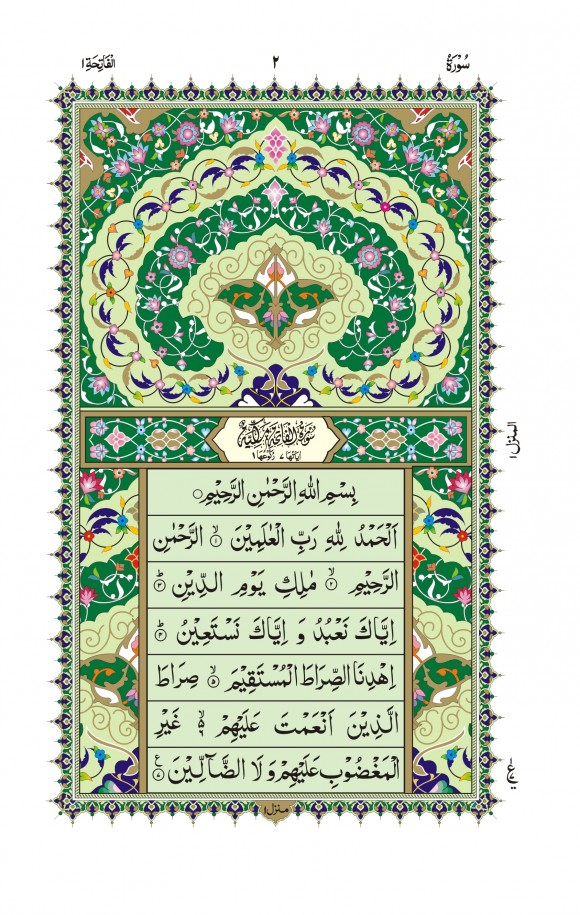 سُوۡرَةُ
٢
اَلْفَاتِحَة ١
سُوْرَةُ الْفَاتِحَةِ مَكِّيَّةٌ
اٰيَاتُهَا ٧ رُكُوْعُهَا ١
بِسْمِ اللهِ الرَّحْمٰنِ الرَّحِيْمِ
اَلْحَمْدُ لِلّٰهِ رَبِّ الْعٰلَمِيْنَ ۙ‏﴿١﴾ الرَّحْمٰنِ
الرَّحِيْمِ ۙ‏﴿٢﴾ مٰلِكِ يَوْمِ الدِّيْنِ ؕ‏﴿٣﴾
اِيَّاكَ نَعْبُدُ وَ اِيَّاكَ نَسْتَعِيْنُ ؕ‏﴿٤﴾
اِهْدِنَا الصِّرَاطَ الْمُسْتَقِيْمَ ۙ‏﴿٥﴾ صِرَاطَ
الَّذِيْنَ اَنْعَمْتَ عَلَيْهِمْ ۙ‏﴿٦﴾ غَيْرِ
الْمَغْضُوْبِ عَلَيْهِمْ وَ لَا الضَّآلِّيْنَ ‏﴿٧﴾
المنزل ١
منزل ١